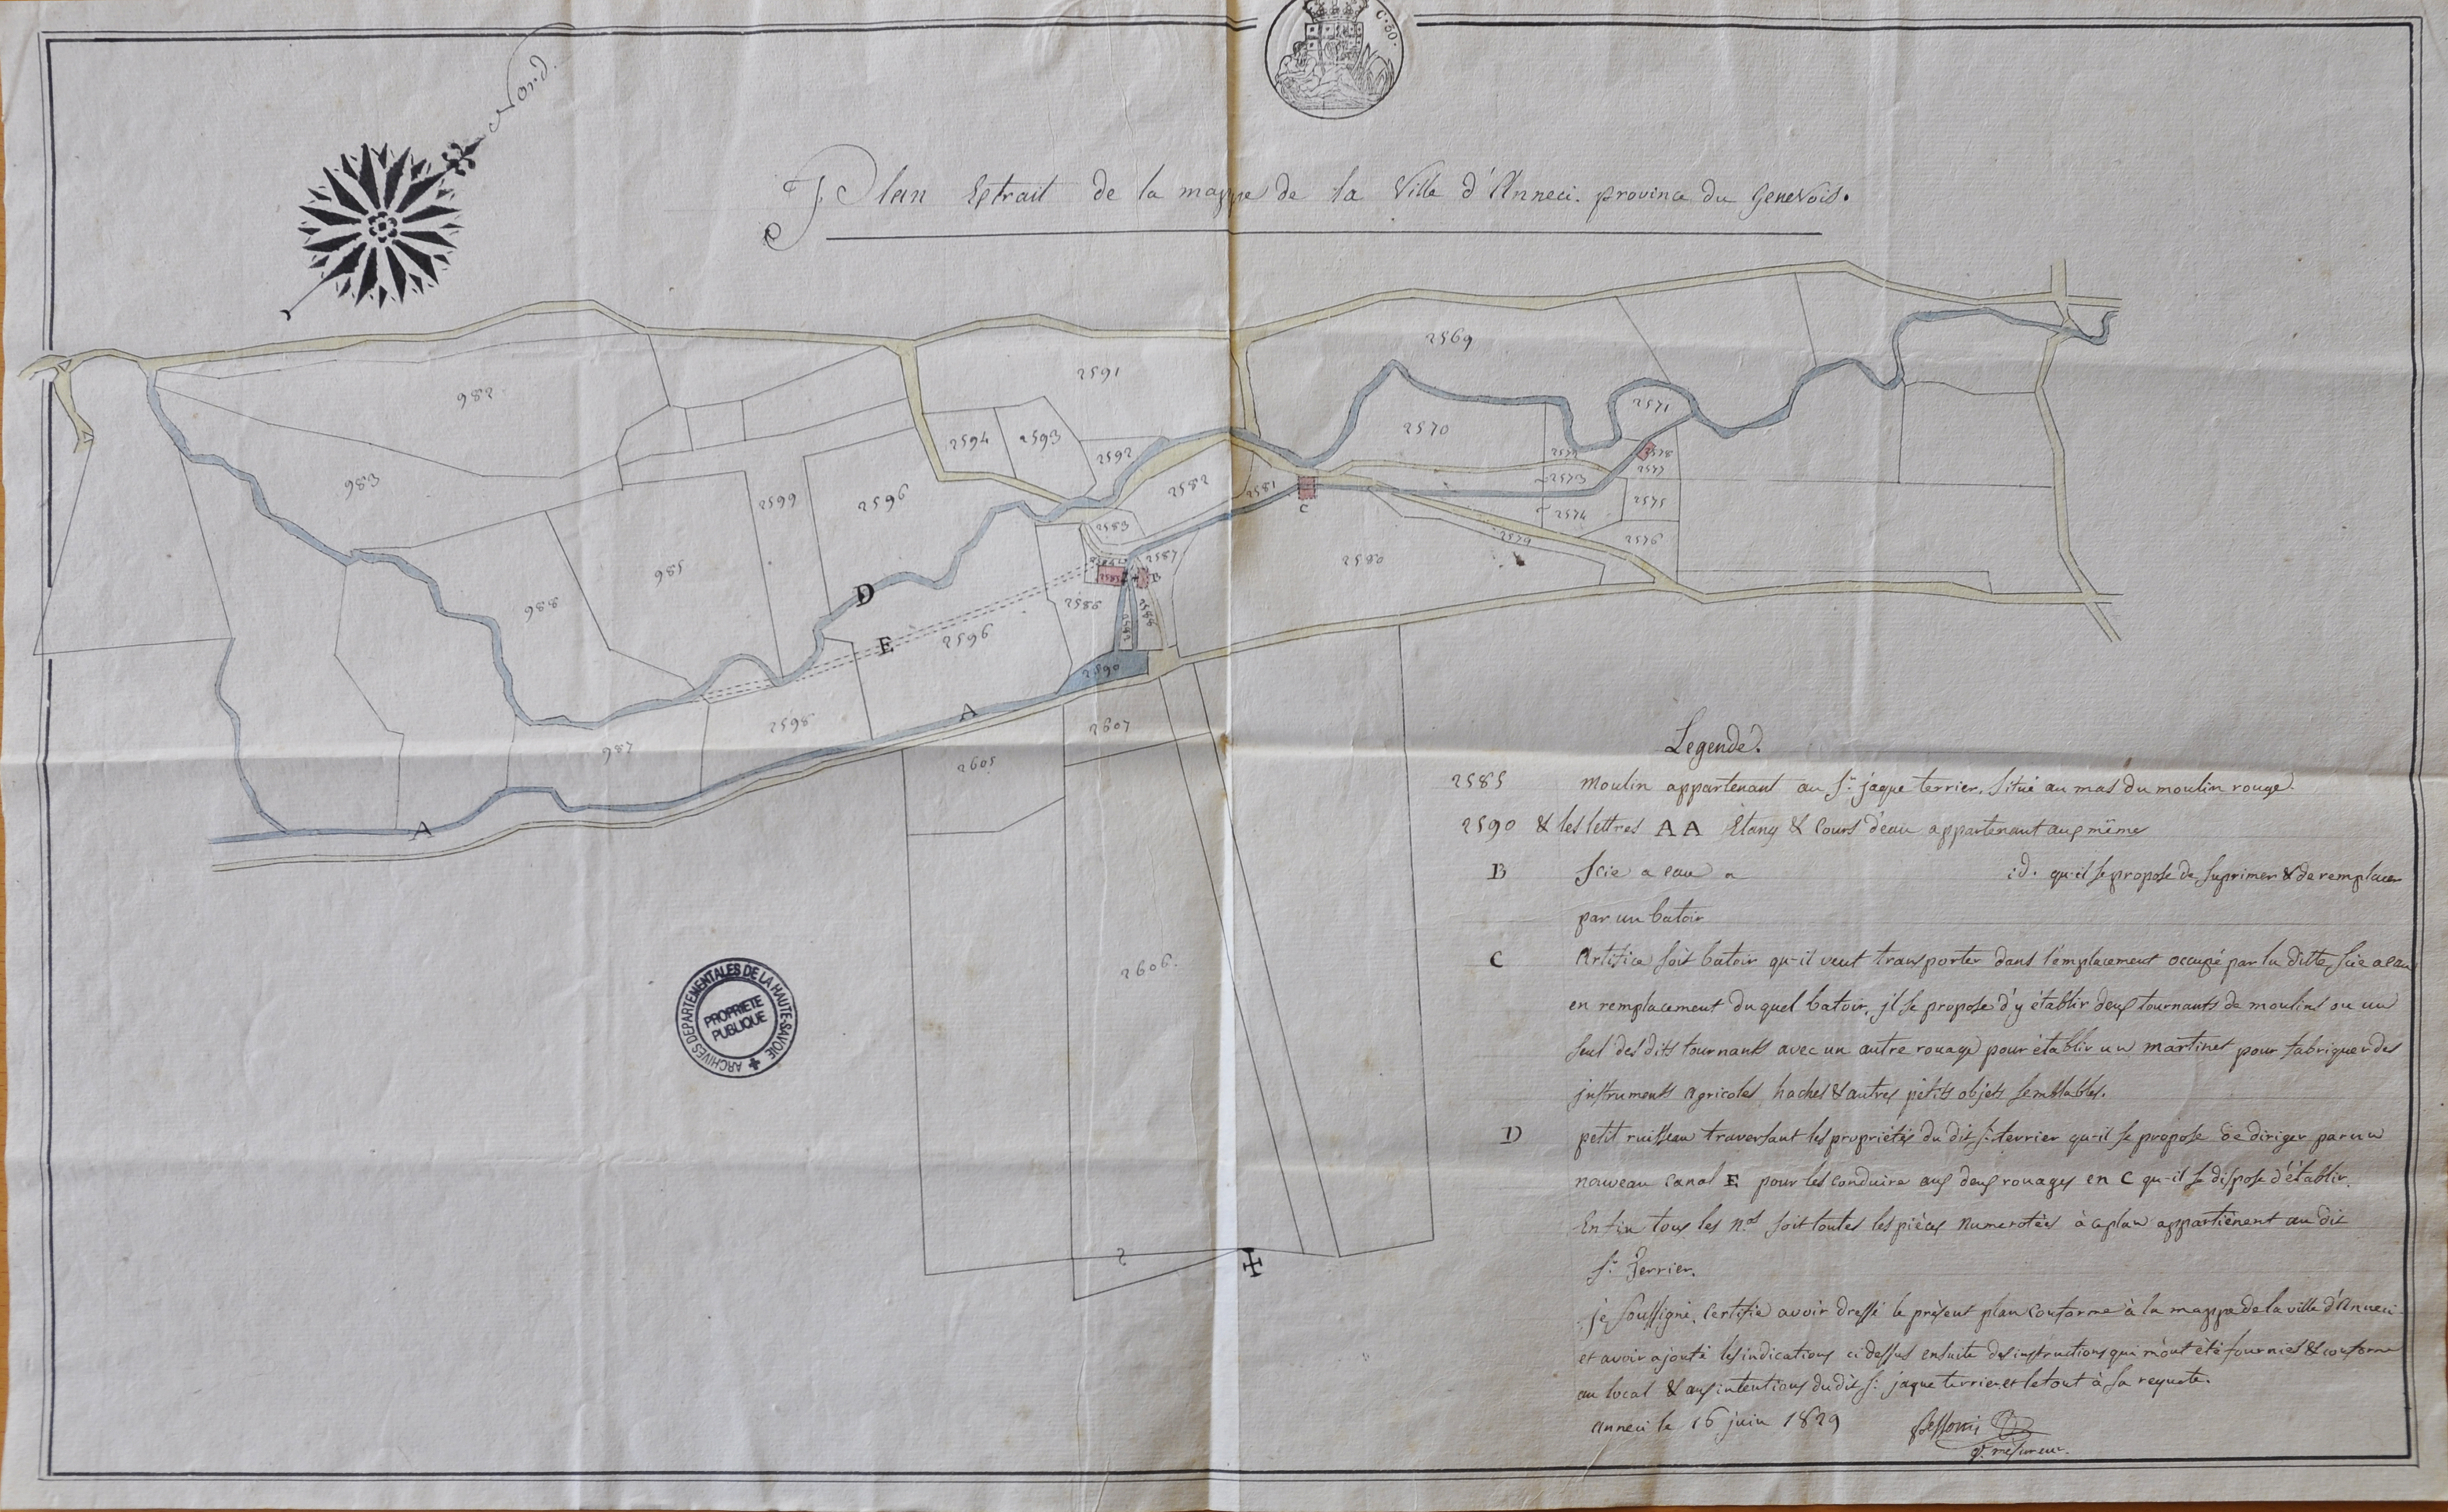 Nord.
C. 30.
Plan Extrait de la mappe de la Ville d'Anneci. province du Genevois.
2569
982
2591
2571
2570
2594
2593
2592
983
2599
2596
2582
2581
2578
2577
2573
C
2575
2574
2583
2576
2579
2587
985
2580
B
988
D
2586
E
2596
2590
A
2598
2607
987
2605
A
2606.
Legende.
2585 Moulin appartenant au Sr. jaque terrier, Situé au mas du moulin rouge.
2590 & les lettres AA Etang & Cours d'eau appartenant aux même
B Scie a eau a id. qu-il se propose de Suprimer & de remplacer
par un batoir
C Artifice soit batoir qu-il veut transporter dans l'emplacement occupé par la ditte Scie a eau
en remplacement du quel batoir, jl se propose d'y établir deux tournants de moulins ou un
seul des dits tournants avec un autre rouage pour établir un martinet pour fabriquer des
jnstruments agricoles, haches & autres petits objets semblables.
D petit ruisseau traversant les propriétés du dit Sr. terrier qu-il se propose de diriger par un
nouveau canal E pour les conduire aux deux rouages en C qu-il se dispose d'établir.
Enfin tous les nos. soit toutes les pièces Numerotées à ce plan appartiënent au dit
Sr. Terrier.
je soussigné, certifie avoir dressé le présent plan conforme à la mappe de la ville d'Anneci
et avoir ajouté les indications ci dessus ensuite des instructions qui m'ont été fournies & conforme
au local & aux intentions du dit Sr. jaque terrier et le tout à sa requete.
Anneci le 16 juin 1829
mesureur.
ARCHIVES DEPARTEMENTALES DE LA HAUTE-SAVOIE
PROPRIETE
PUBLIQUE